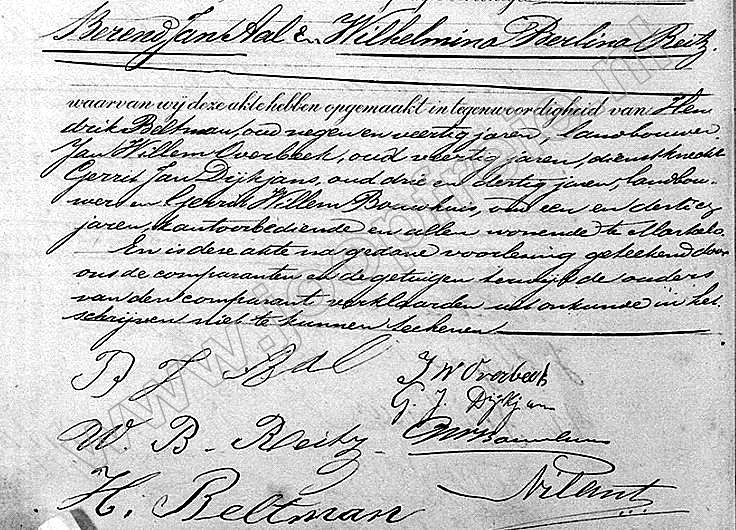 Berend Jan Aal & en Wilhelmina Berlina Reitz.
waarvan wij deze akte hebben opgemaakt in tegenwoordigheid van Hen
drik Beltman, oud negen en veertig jaren, landbouwer
Jan Willem Overbeek, oud veertig jaren, dienstknecht
Gerrit Jan Dijkjans, oud drie en dertig jaren, landbou-
wer en Gerrit Willem Bouwhuis, oud een en dertig
jaren, kantoorbediende en allen wonende te Markelo.
En is deze akte na gedane voorlezing geteekend door
ons de comparanten en de getuigen terwijl de ouders
van den comparant verklaarden uit onkunde in het
schrijven niet te kunnen teekenen
B J Aal
J W Overbeek
G. J. Dijkjans
W. B. Reitz
GWBouwhuis
H. Beltman